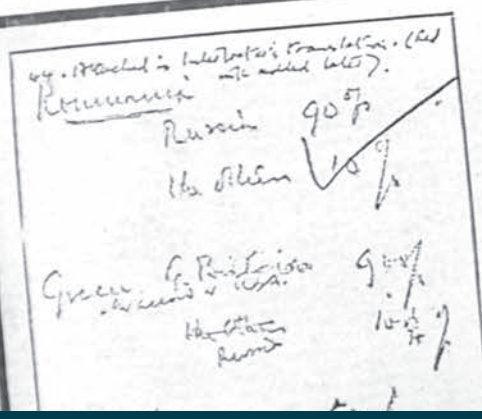 Attached is translation. (Red
added later).
Roumania
Russia 90%
The others 10%
Greece G. Britain 90%
in accord w USA.
The others
Russia 10%